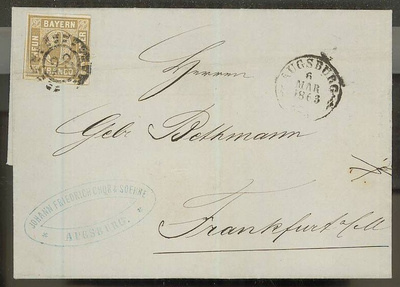 BAYERN
AUGSBURG
6
MAR
1863
Herren
Gebr Bethmann
Frankfurt a/M
JOHANN FRIEDRICH
SOEHNE
AUGSBURG.